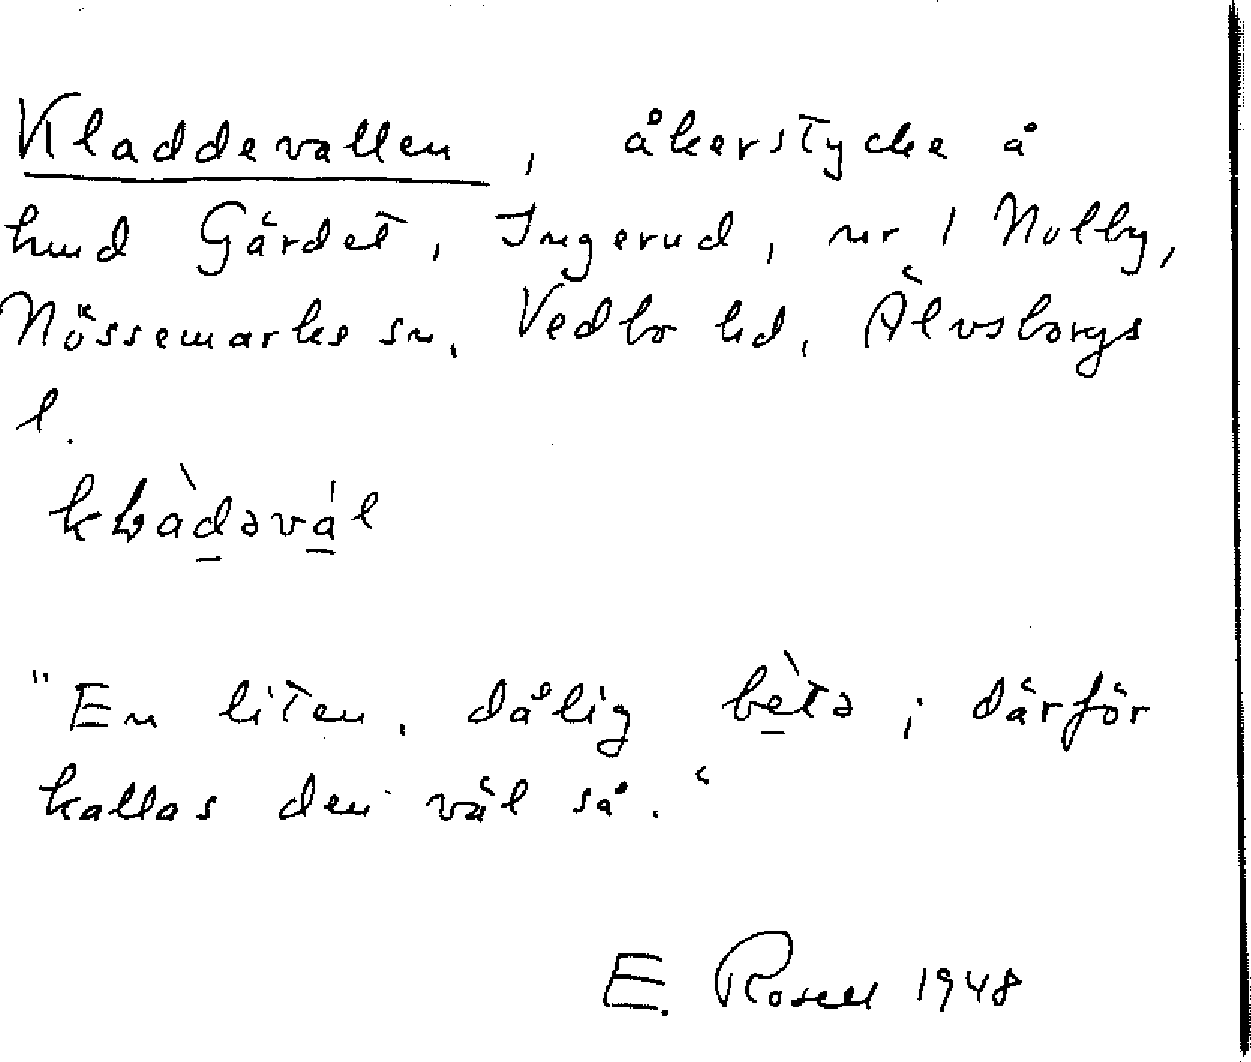 Kladdevallen, åkerstycke å
hmd Gärdet, Ingerud, nr 1 Nolby,
Nössemarks sn. Vedbo hd, Älvsborgs
l.
"En liten, dålig bètə; därför
kallas den väl så."
E. Rosell 1948